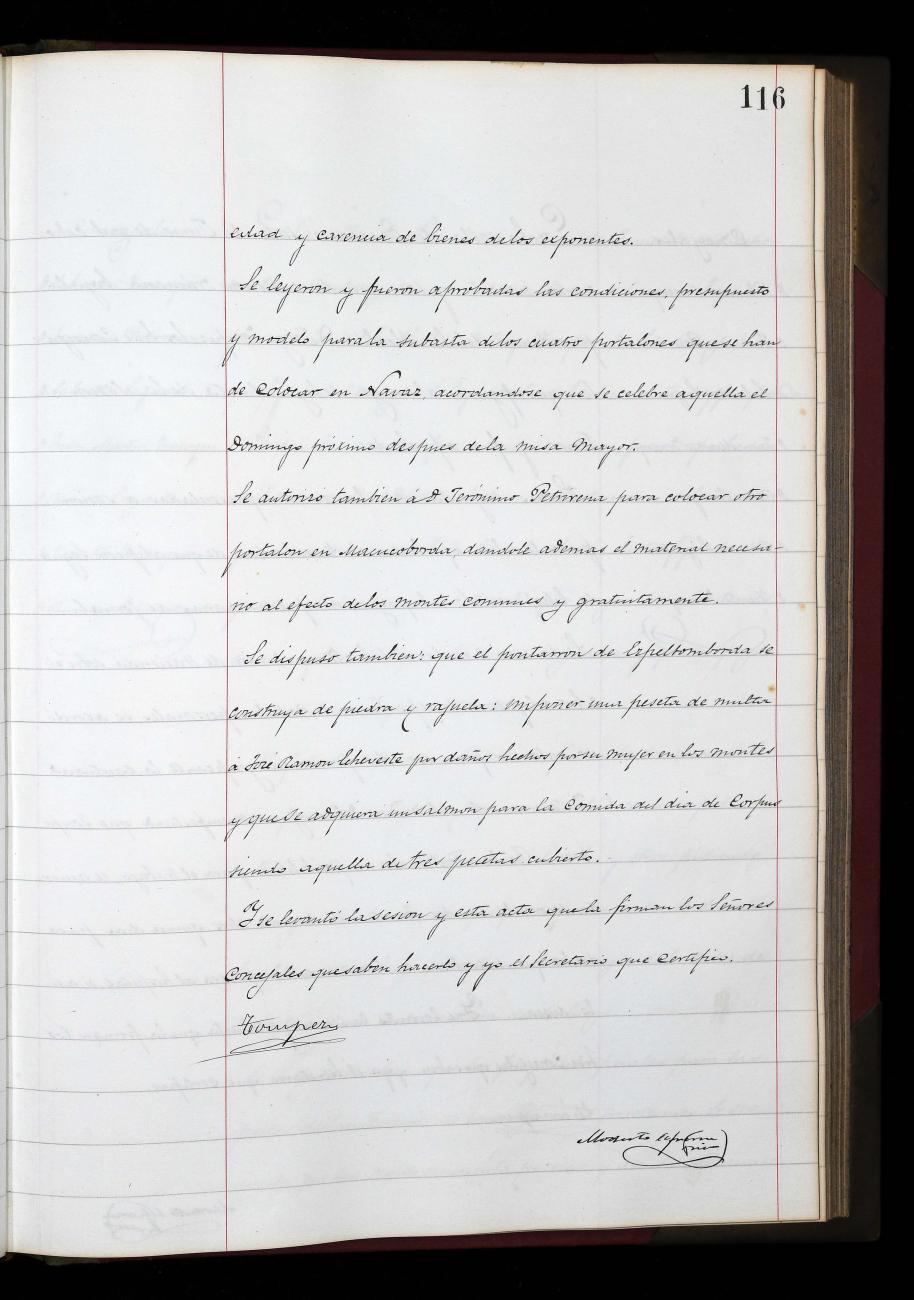 116
edad y carencia de bienes de los exponentes.
Se leyeron y fueron aprobadas las condiciones, presupuesto
y modelo para la subasta de los cuatro portalones que se han
de colocar en Navaz, acordandose que se celebre aquella el
Domingo próximo despues de la misa Mayor.
Se autorizó tambien á D. Jerónimo Petrirena para colocar otro
portalon en Macucoborda, dandole ademas el material necesa-
rio al efecto de los montes comunes y gratuitamente.
Se dispuso tambien: que el pontarron de Expeltomborda se
construya de piedra y rajuela: imponer una peseta de multa
á José Ramon Echeveste por daños hechos por su mujer en los montes
y que se adquiera un salmon para la comida del dia de Corpus
siendo aquella de tres pesetas cubierto.
Y se levantó la sesion y esta acta que la firman los Señores
Concejales que saben hacerlo y yo el Secretario que certifico.
Modesto